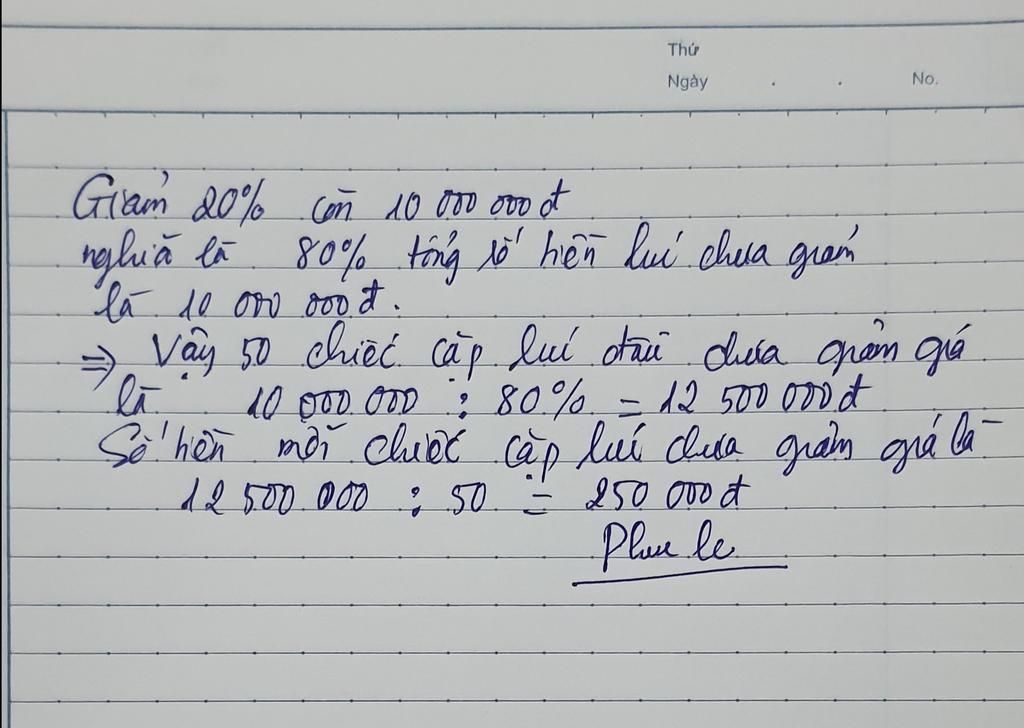 Thứ
Ngày . . No.
Giảm 20% còn 10 000 000 đ
nghĩa là 80% tổng số tiền lúc chưa giảm
là 10 000 000 đ.
⇒ Vậy 50 chiếc cặp lúc đầu chưa giảm giá
là 10 000 000 : 80% = 12 500 000 đ
Số tiền mỗi chiếc cặp lúc chưa giảm giá là
12 500 000 : 50 = 250 000 đ
Phu le